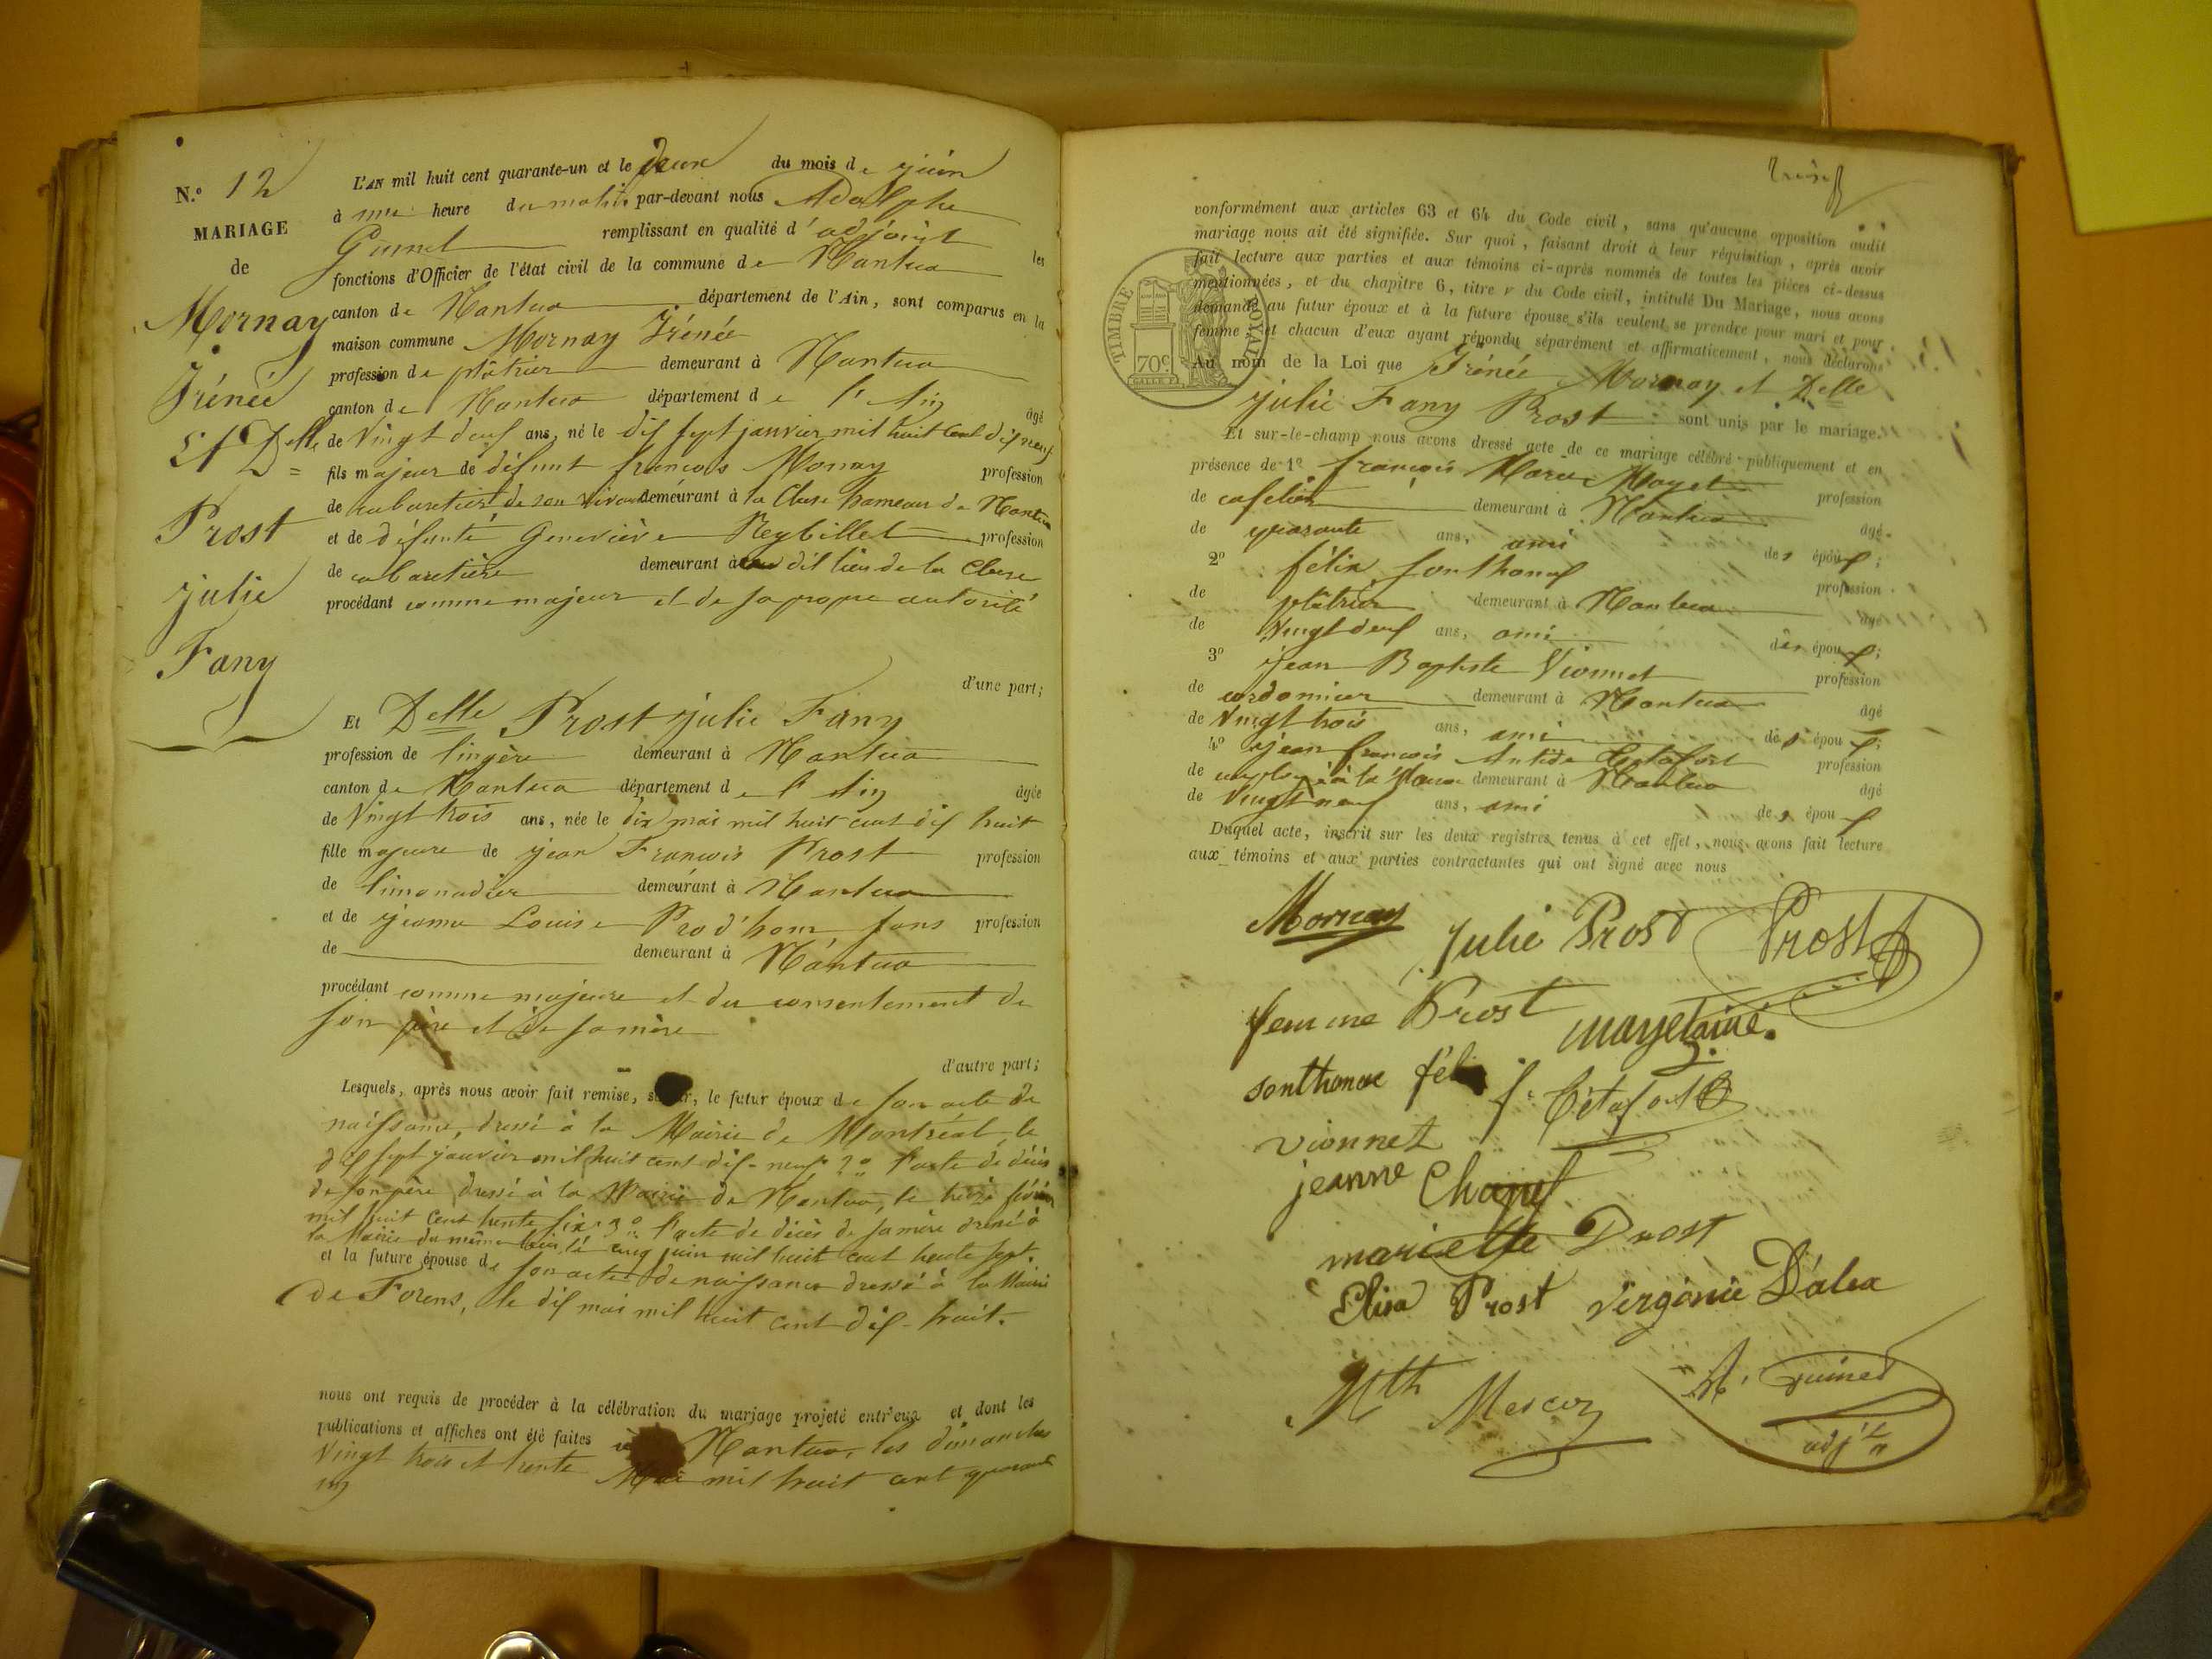 N.o 12
MARIAGE
de
Mornay
Irénée
Et Delle
Prost
julie
Fany
L'AN mil huit cent quarante-un et le deux du mois de juin
à une heure du matin par-devant nous Adolphe
Guinet remplissant en qualité d'adjoint les
fonctions d'Officier de l'état civil de la commune de Nantua
canton de Nantua département de l'Ain, sont comparus en la
maison commune Mornay Irénée
profession de plâtrier demeurant à Nantua
canton de Nantua département de l'Ain âgé
de Vingt deux ans, né le dix sept janvier mil huit cent dix neuf
fils majeur de défunt francois Mornay profession
de cabaretier de son vivant demeurant à la Cluse hameau de Nantua
et de défunte Geneviève Reybillet profession
de cabaretière demeurant à au dit lieu de la Cluse
procédant comme majeur et de sa propre autorité
d'une part;
Et Delle Prost julie Fany
profession de lingère demeurant à Nantua
canton de Nantua département de l'Ain âgée
de Vingt trois ans, née le dix mai mil huit cent dix huit
fille majeure de jean Francois Prost profession
de limonadier demeurant à Nantua
et de jeanne Louise Prod'hom sans profession
de demeurant à Nantua
procédant comme majeure et du consentement de
son père et de sa mère
d'autre part;
Lesquels, après nous avoir fait remise, le futur époux de son acte de
naissance, dressé à la Mairie de Montréal le
dix sept janvier mil huit cent dix-neuf 2o l'acte de décès
de son père dressé à la Mairie de Nantua, le treize février
mil huit cent trente six 3o l'acte de décès de sa mère dressé à
la Mairie du même lieu le cinq juin mil huit cent trente sept.
et la future épouse de son acte de naissance dressé à la Mairie
de Forens, le dix mai mil huit cent dix-huit.
nous ont requis de procéder à la célébration du mariage projeté entr'eux et dont les
publications et affiches ont été faites à Nantua, les dimanches
Vingt trois et trente Mai mil huit cent quarante
un
conformément aux articles 63 et 64 du Code civil, sans qu'aucune opposition audit
mariage nous ait été signifiée. Sur quoi, faisant droit à leur réquisition, après avoir
fait lecture aux parties et aux témoins ci-après nommés de toutes les pièces ci-dessus
mentionnées, et du chapitre 6, titre V du Code civil, intitulé Du Mariage, nous avons
demandé au futur époux et à la future épouse s'ils veulent se prendre pour mari et pour
femme; et chacun d'eux ayant répondu séparément et affirmativement, nous déclarons
Au nom de la Loi que Irénée Mornay et Delle
julie Fany Prost sont unis par le mariage.
TIMBRE ROYAL
70c
Et sur-le-champ nous avons dressé acte de ce mariage célébré publiquement et en
présence de 1o françois Marie Mayet profession
de cafetier demeurant à Nantua âgé
de quarante ans, ami des époux;
2o félix sonthonax profession
de plâtrier demeurant à Nantua âgé
de Vingt deux ans, ami des époux;
3o jean Baptiste Vionnet profession
de cordonnier demeurant à Nantua âgé
de Vingt trois ans, ami des époux;
4o jean françois Antide Cétafort profession
de employé à la Mairie demeurant à Nantua âgé
de Vingt neuf ans, ami des époux
Duquel acte, inscrit sur les deux registres tenus à cet effet, nous avons fait lecture
aux témoins et aux parties contractantes qui ont signé avec nous
Mornay
Julie Prost
Prost
femme Prost
mayet aîné.
sonthonax
f. Cétafort
vionnet
jeanne Chapuy
mariette Prost
Elisa Prost
Virginie D'alea
Mth Mercoz
A. Guinet
adjt